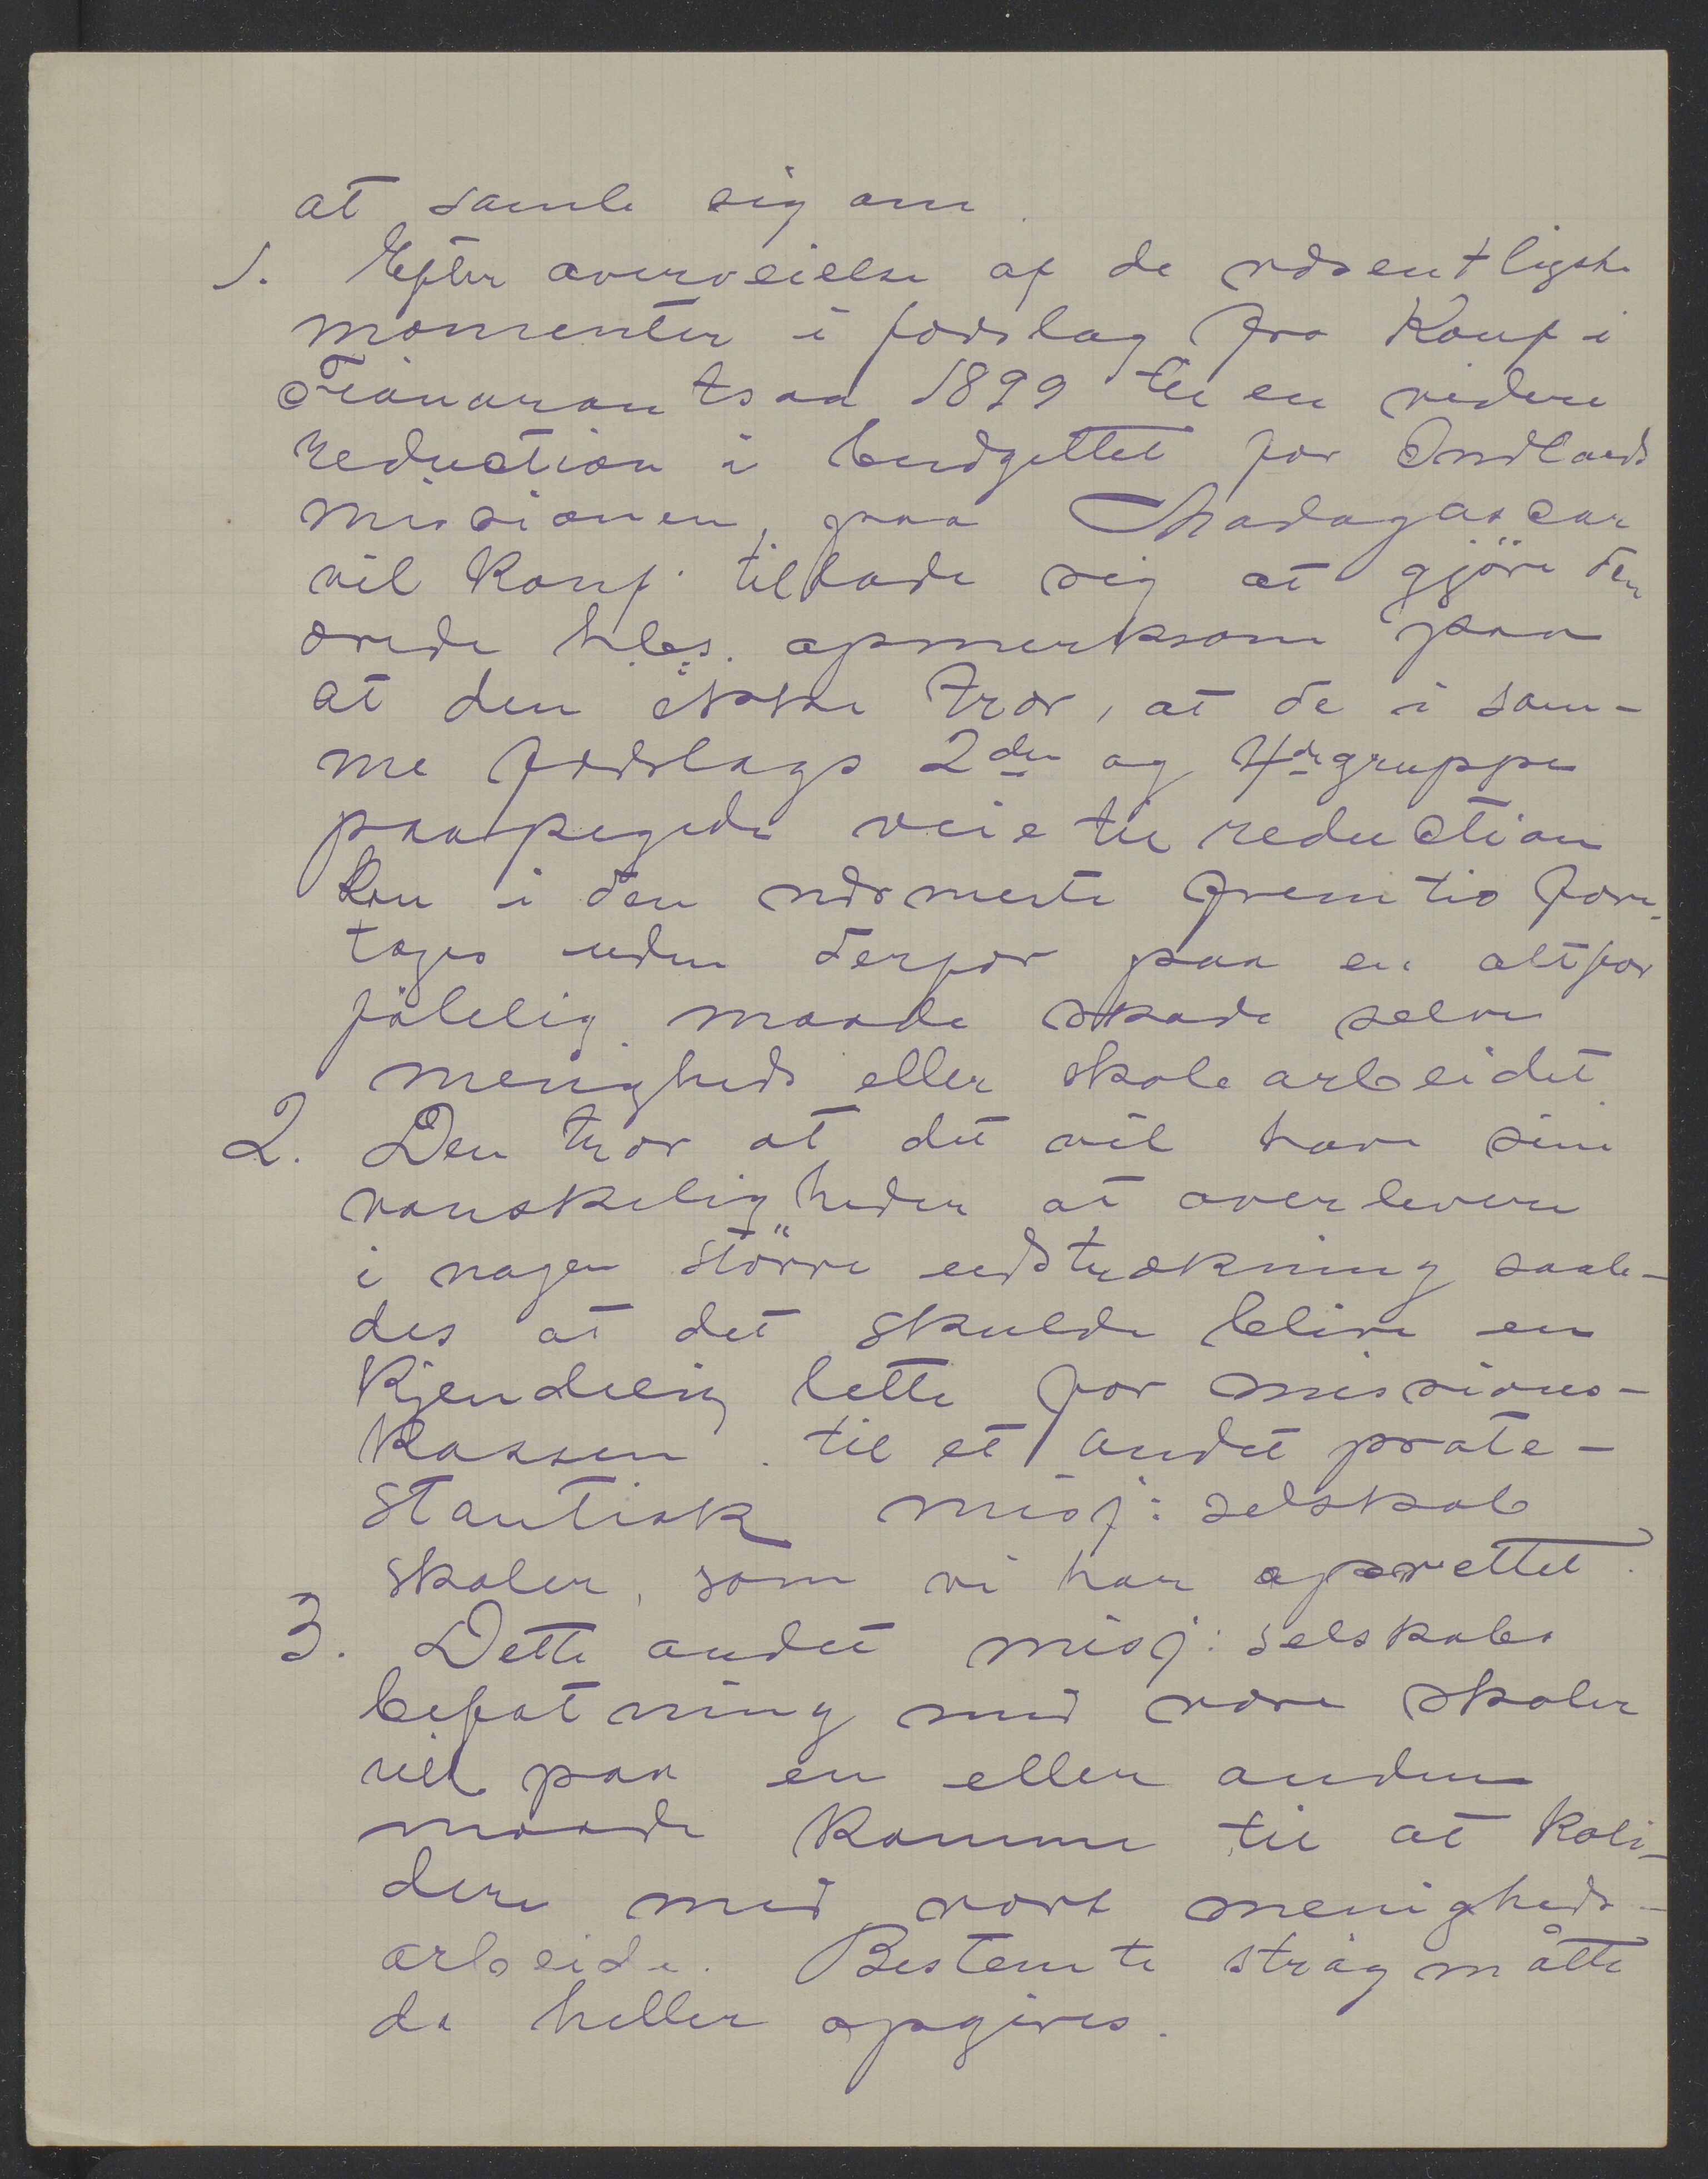 at samle sig om
1. Efter overveielse af de væsentligste
momenter i forslag fra Konf i
Fianarantsoa 1899 til en videre
reduction i budgettet for Indlands
missionen, paa Madagascar
vil Konf. tillade sig at gjöre den
ærede h.b.s. opmerksom paa
at den ikke tror, at de i sam-
me forslags 2den og 4de gruppe
paapegede veie til reduction
kan i den nærmeste fremtid fore-
tages uden derfor paa en altfor
fölelig maade skade selve
menigheds eller skolearbeidet
2. Den tror at det vil have sine
vanskeligheder at overlevere
i nogen större udstrækning saale-
des at det skulde blive en
kjendelig lette for missions-
kassen. til et andet prote-
stantisk misj: selskab
skoler, som vi har oprettet.
3. Dette andet misj: selskabs
befatning med vore skoler
vil paa en eller anden
maade komme til at koli-
dere med vort menigheds-
arbeide. Bestemte strög måtte
da heller opgives.